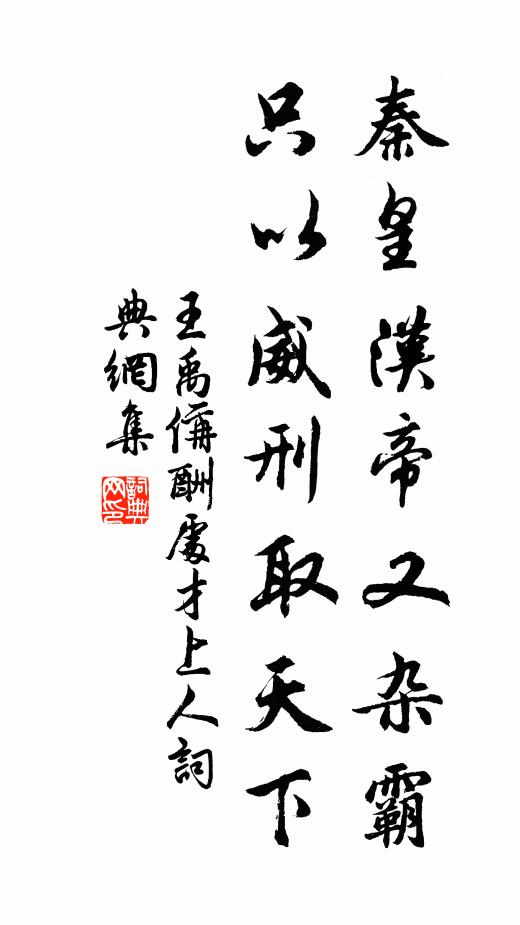 秦皇漢帝又杂霸
只以威刑取天下
王禹偁酬處才上人詞
典網集
詞典网印